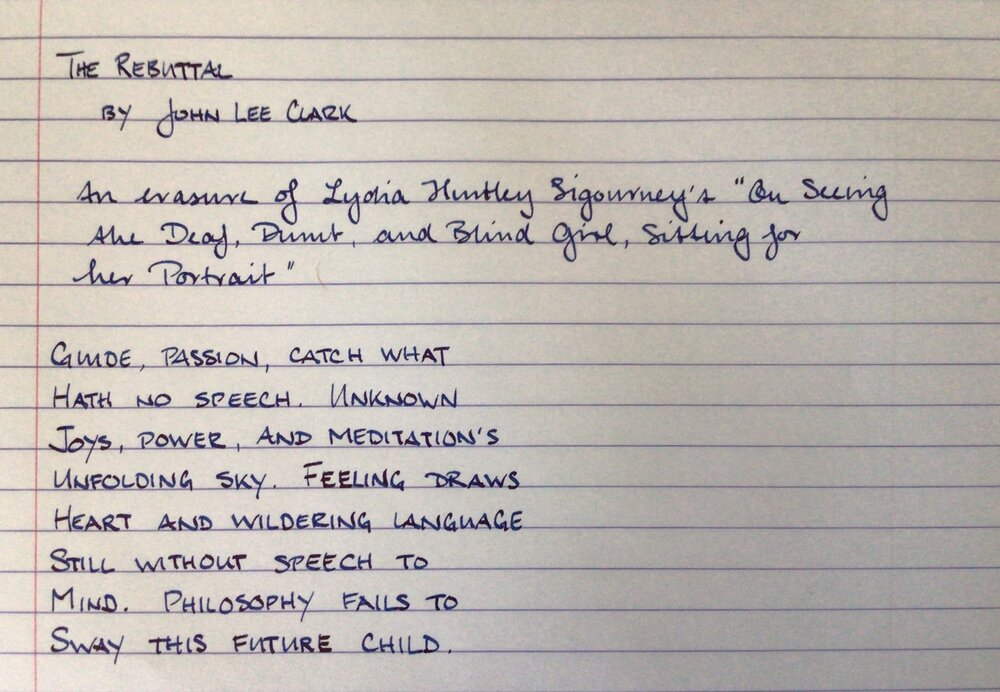 The Rebuttal
by John Lee Clark
An erasure of Lydia Huntley Sigourney's "On Seeing
the Deaf, Dumb, and Blind Girl, Sitting for
her Portrait"
Guide, passion, catch what
Hath no speech. Unknown
Joys, power, and meditation's
Unfolding sky. Feeling draws
Heart and wildering language
Still without speech to
Mind. Philosophy fails to
Sway this future child.